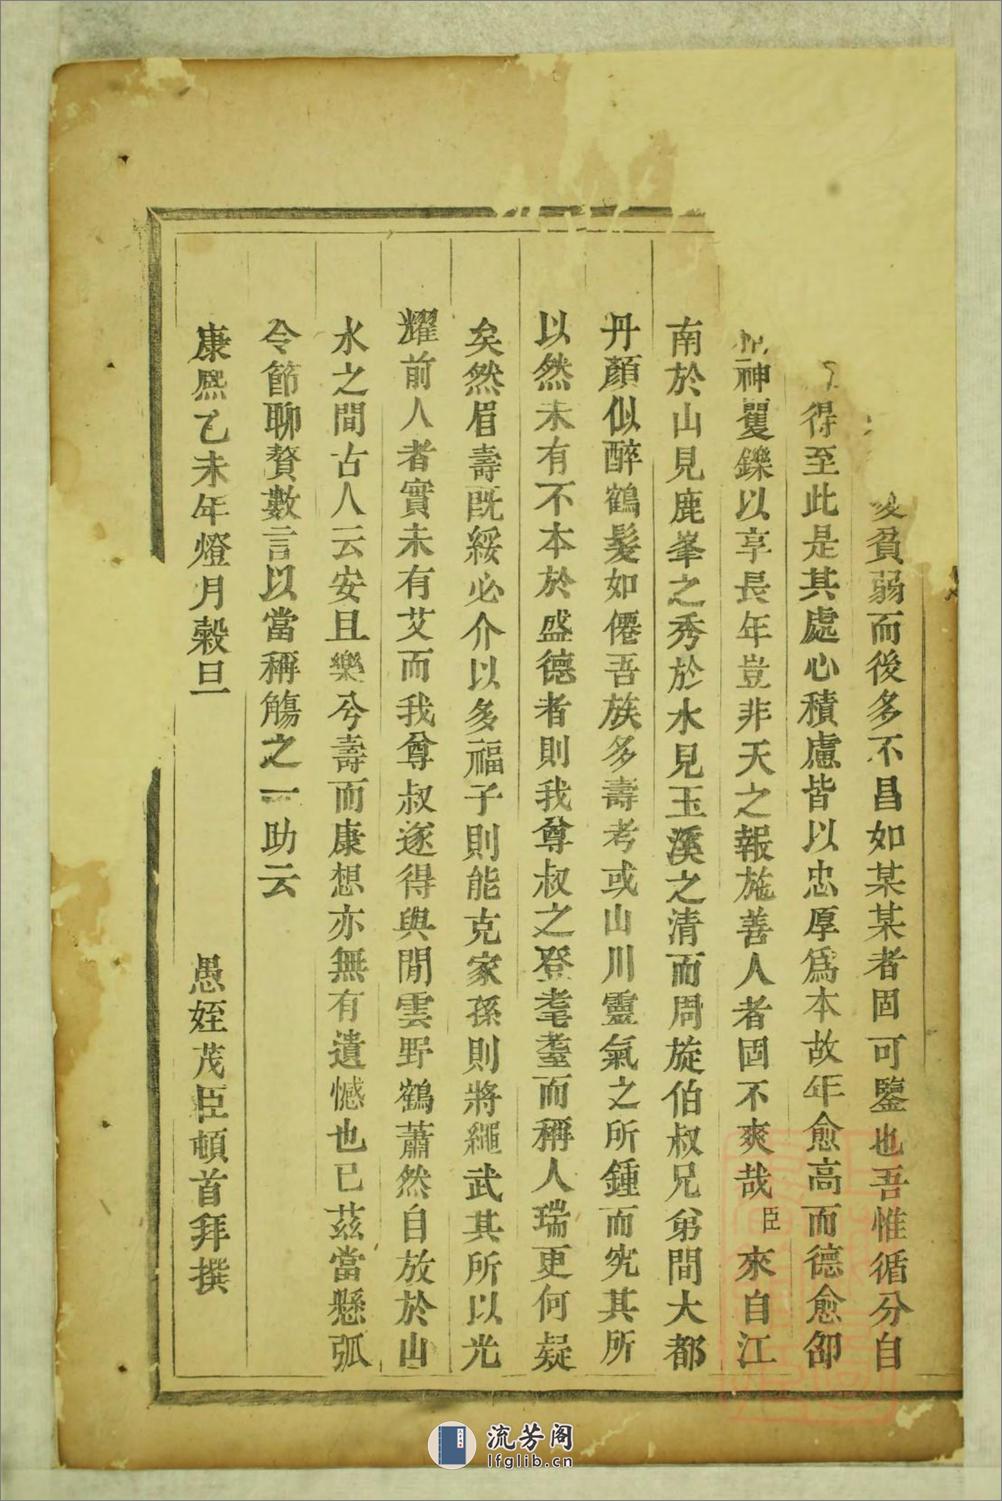 貧弱而後多不昌如某某者固可鑒也吾惟循分自
得至此是其處心積慮皆以忠厚爲本故年愈高而德愈卲
神矍鑠以享長年豈非天之報施善人者固不爽哉臣來自江
南於山見鹿峯之秀於水見玉溪之清而周旋伯叔兄弟間大都
丹顏似醉鶴髮如僊吾族多壽考或山川靈氣之所鍾而究其所
以然未有不本於盛德者則我尊叔之登耄耋而稱人瑞更何疑
矣然眉壽既綏必介以多福子則能克家孫則將繩武其所以光
耀前人者實未有艾而我尊叔遂得與閒雲野鶴蕭然自放於山
水之間古人云安且樂兮壽而康想亦無有遺憾也已茲當懸弧
令節聊贅數言以當稱觴之一助云
康熙乙未年燈月穀旦 愚姪茂臣頓首拜撰
流芳阁
lfglib.cn